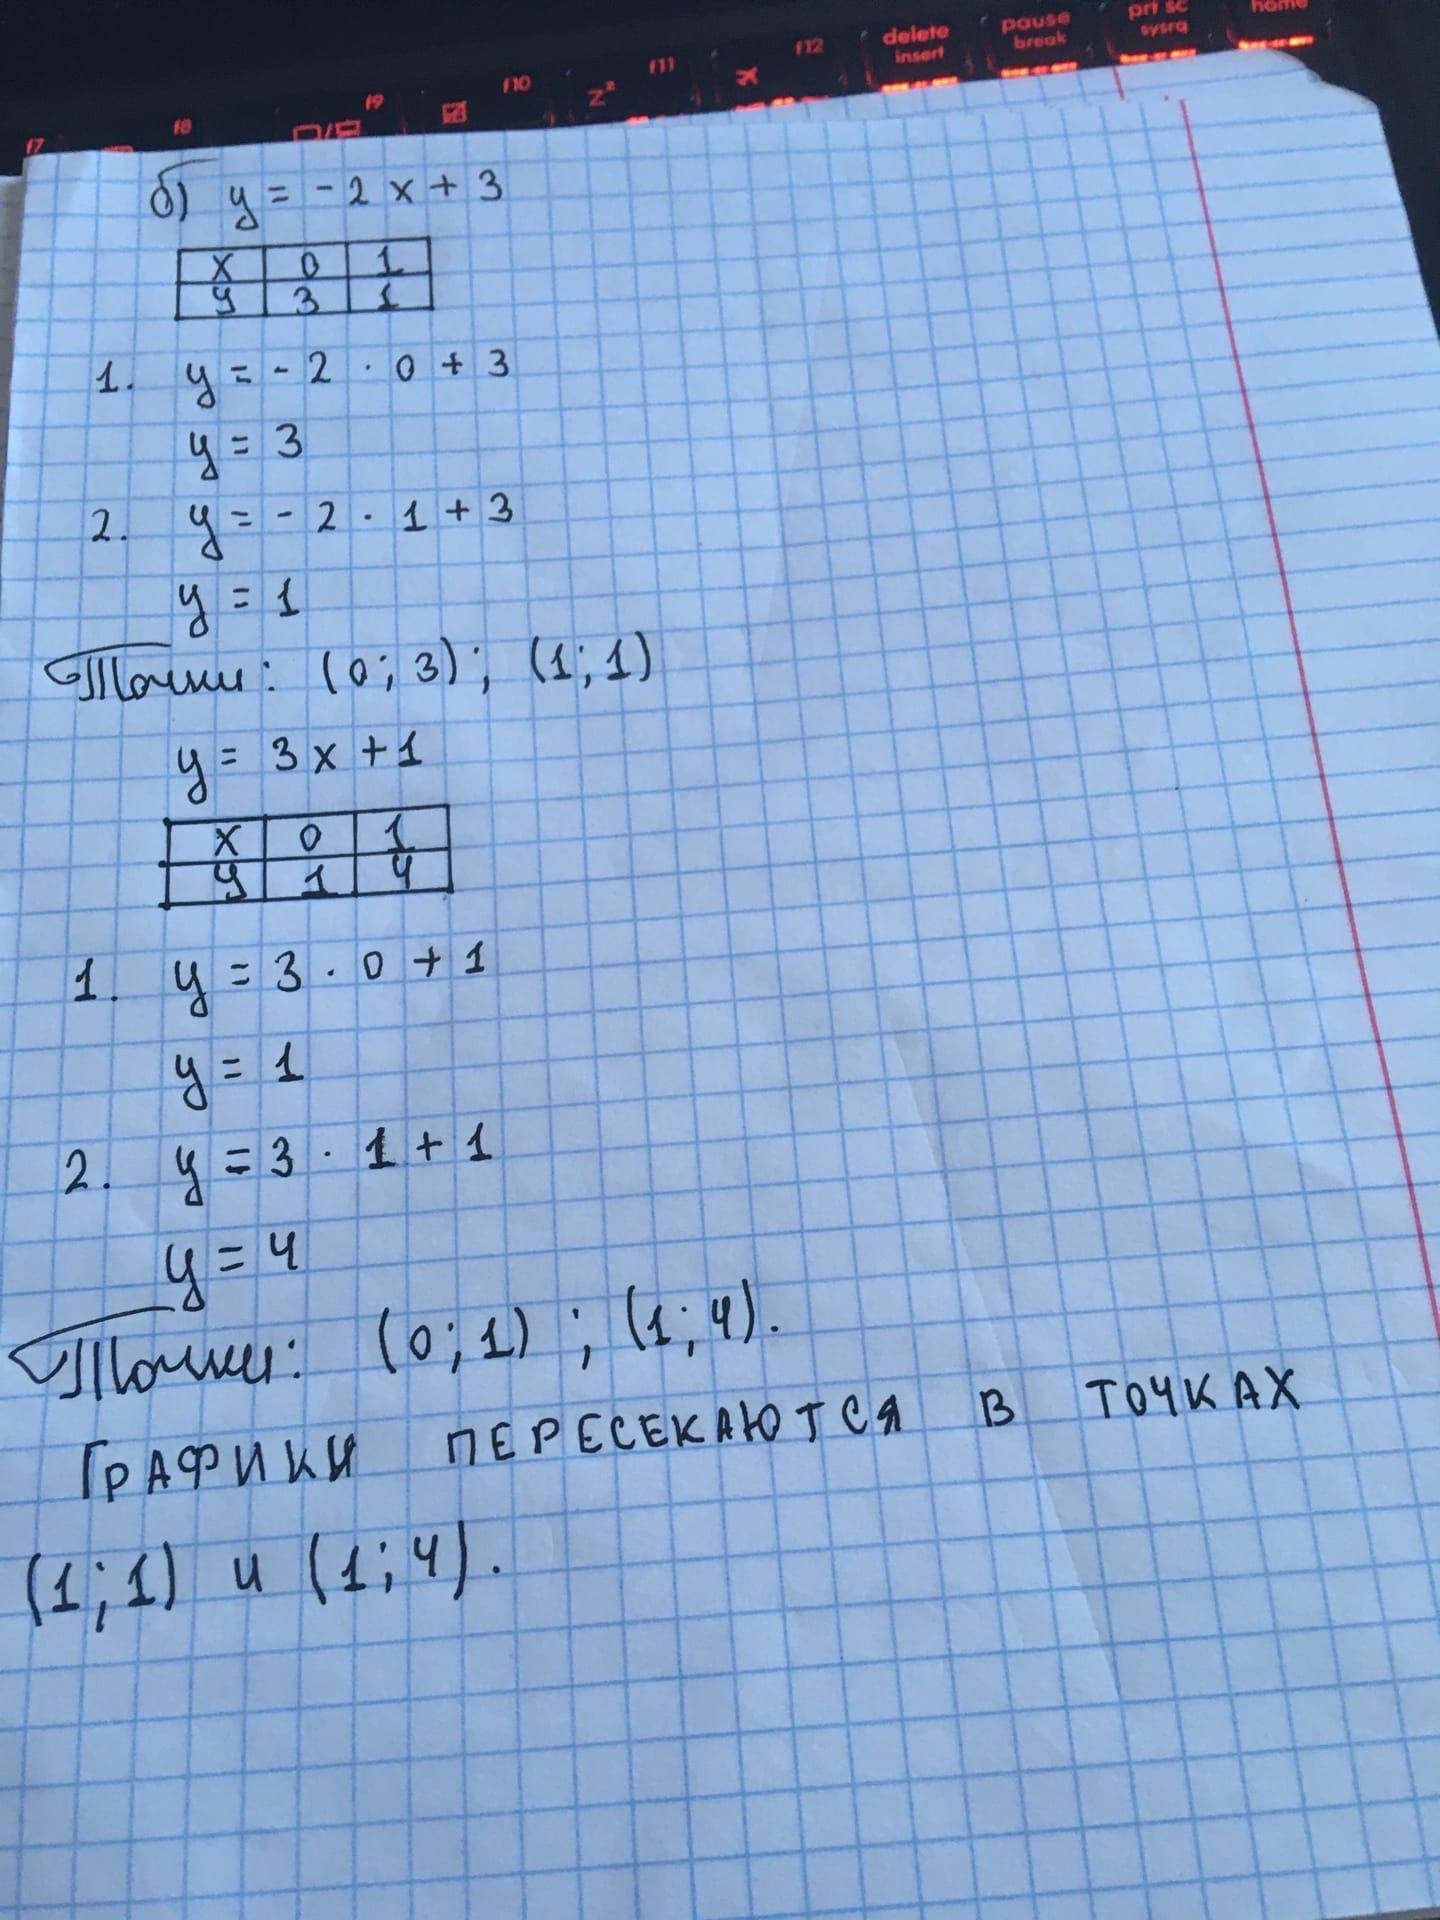 f7 f8 f9 f10 f11 f12 delete insert pause break prt sc sysrq home
zᶻ
б) y = -2x + 3
x 0 1
y 3 1
1. y = -2 · 0 + 3
y = 3
2. y = -2 · 1 + 3
y = 1
Точки: (0; 3); (1; 1)
y = 3x + 1
x 0 1
y 1 4
1. y = 3 · 0 + 1
y = 1
2. y = 3 · 1 + 1
y = 4
Точки: (0; 1); (1; 4).
ГРАФИКИ ПЕРЕСЕКАЮТСЯ В ТОЧКАХ
(1; 1) и (1; 4).